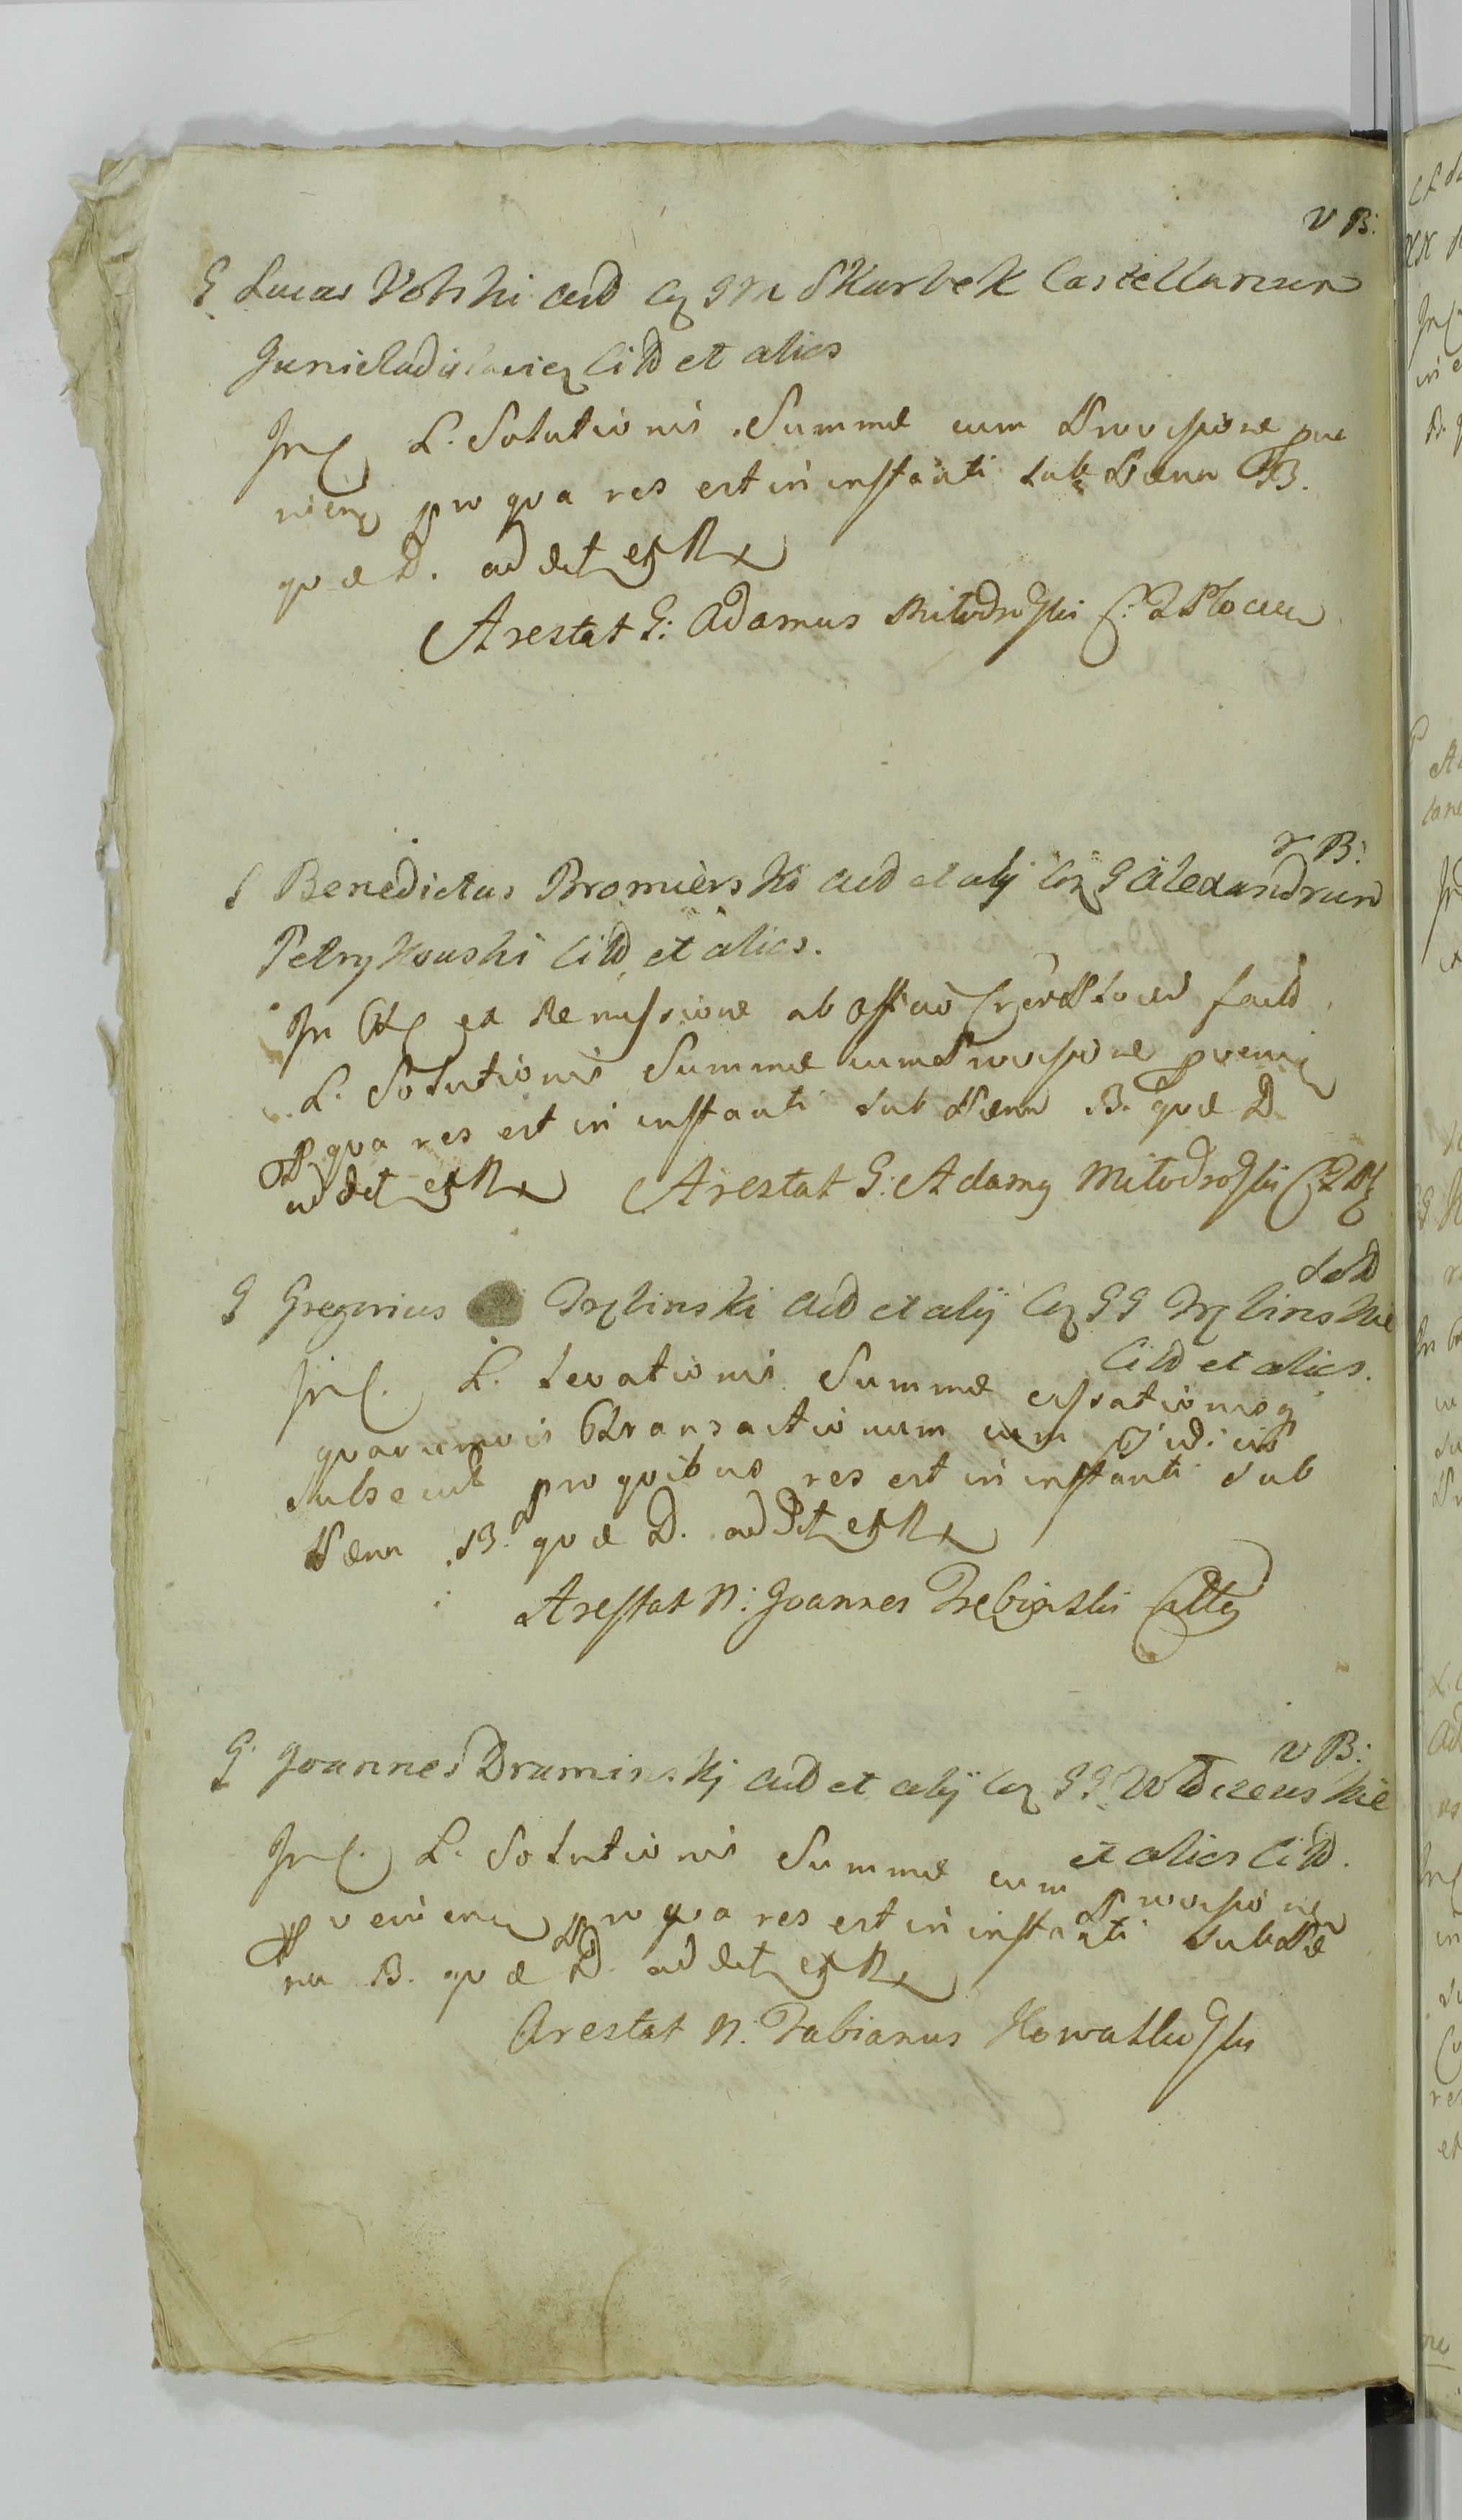 V B:
G Lucas Volski Actd Cq G M Skarbek Castellanum
Juniuladislavien Citd et alios
In C. L. Solutionis Summæ cum Provisione prove
nien pro qua res est in instanti sub Pæna B.
quæ D. ad det et R
Arestat G: Adamus Mitodroski C: Z Plocen
V B:
G Benedictus Bromierski Actd et alij Cq G Alexandrum
Petrykouski Citd et alios.
In ex Remissione ab Officio Plocen factd
L. Solutionis Summæ cum Provisione provenien
P qua res est in instanti sub Pæna B. quæ D.
ad det et R Arestat G: Adamq Mitodroski
Sotd
G Gregorius Trzbinski Actd et alij Cq GG Trzbinskie
Citd et alios.
In C. L. levationis Summæ cassationisq
quarumvis Transactionum cum
Subsecut pro quibus res est in instanti sub
Pæna B. quæ D. ad det et R
Arestat N: Joannes Trebinski
V B:
G: Joannes Druminskj Actd et alij Cq GG
et alios Citd.
In C. L. Solutionis Summæ cum Provisione
Provenien pro qua res est in instanti sub Pæ
na B. quæ D. ad det et R
Arestat N. Fabianus Kowalkoski